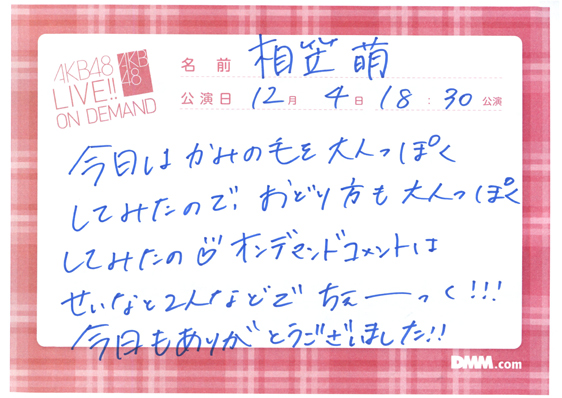 AKB48
LIVE!!
ON DEMAND
AKB
48
名前 相笠萌
公演日 12月 4日 18:30 公演
今日はかみの毛を大人っぽく
してみたので、おどり方も大人っぽく
してみたの♡オンデマンドコメントは
せいなと2人などで ちぇーーっく!!!
今日もありがとうございました!!
DMM.com